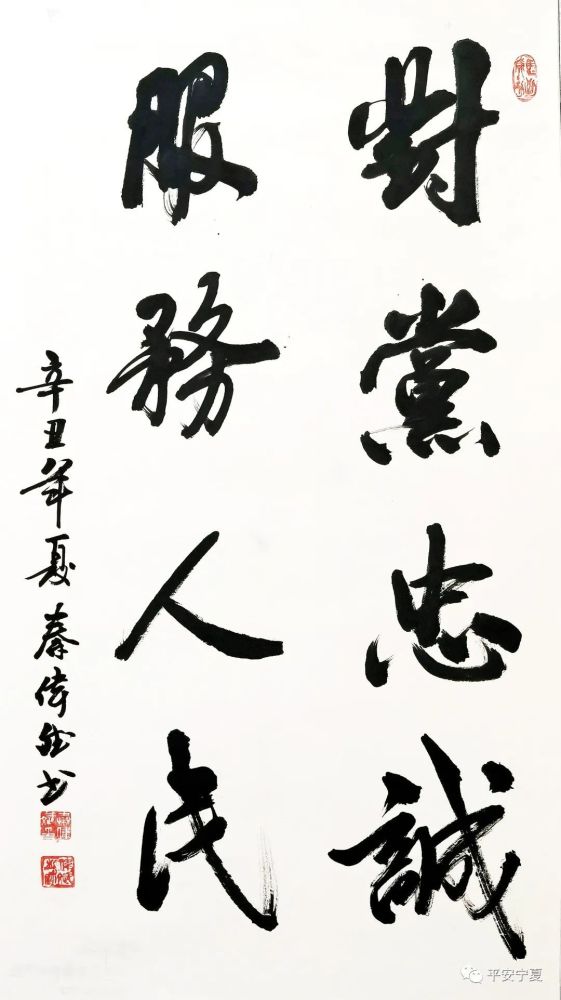 對黨忠誠
服務人民
辛丑年夏秦偉書
平安宁夏